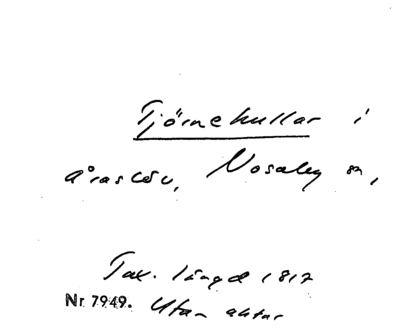 Tjörnekullar i
Åraslöv, Nosaby sn,
Tax. längd 1812
Nr 7949. Utan aktnr